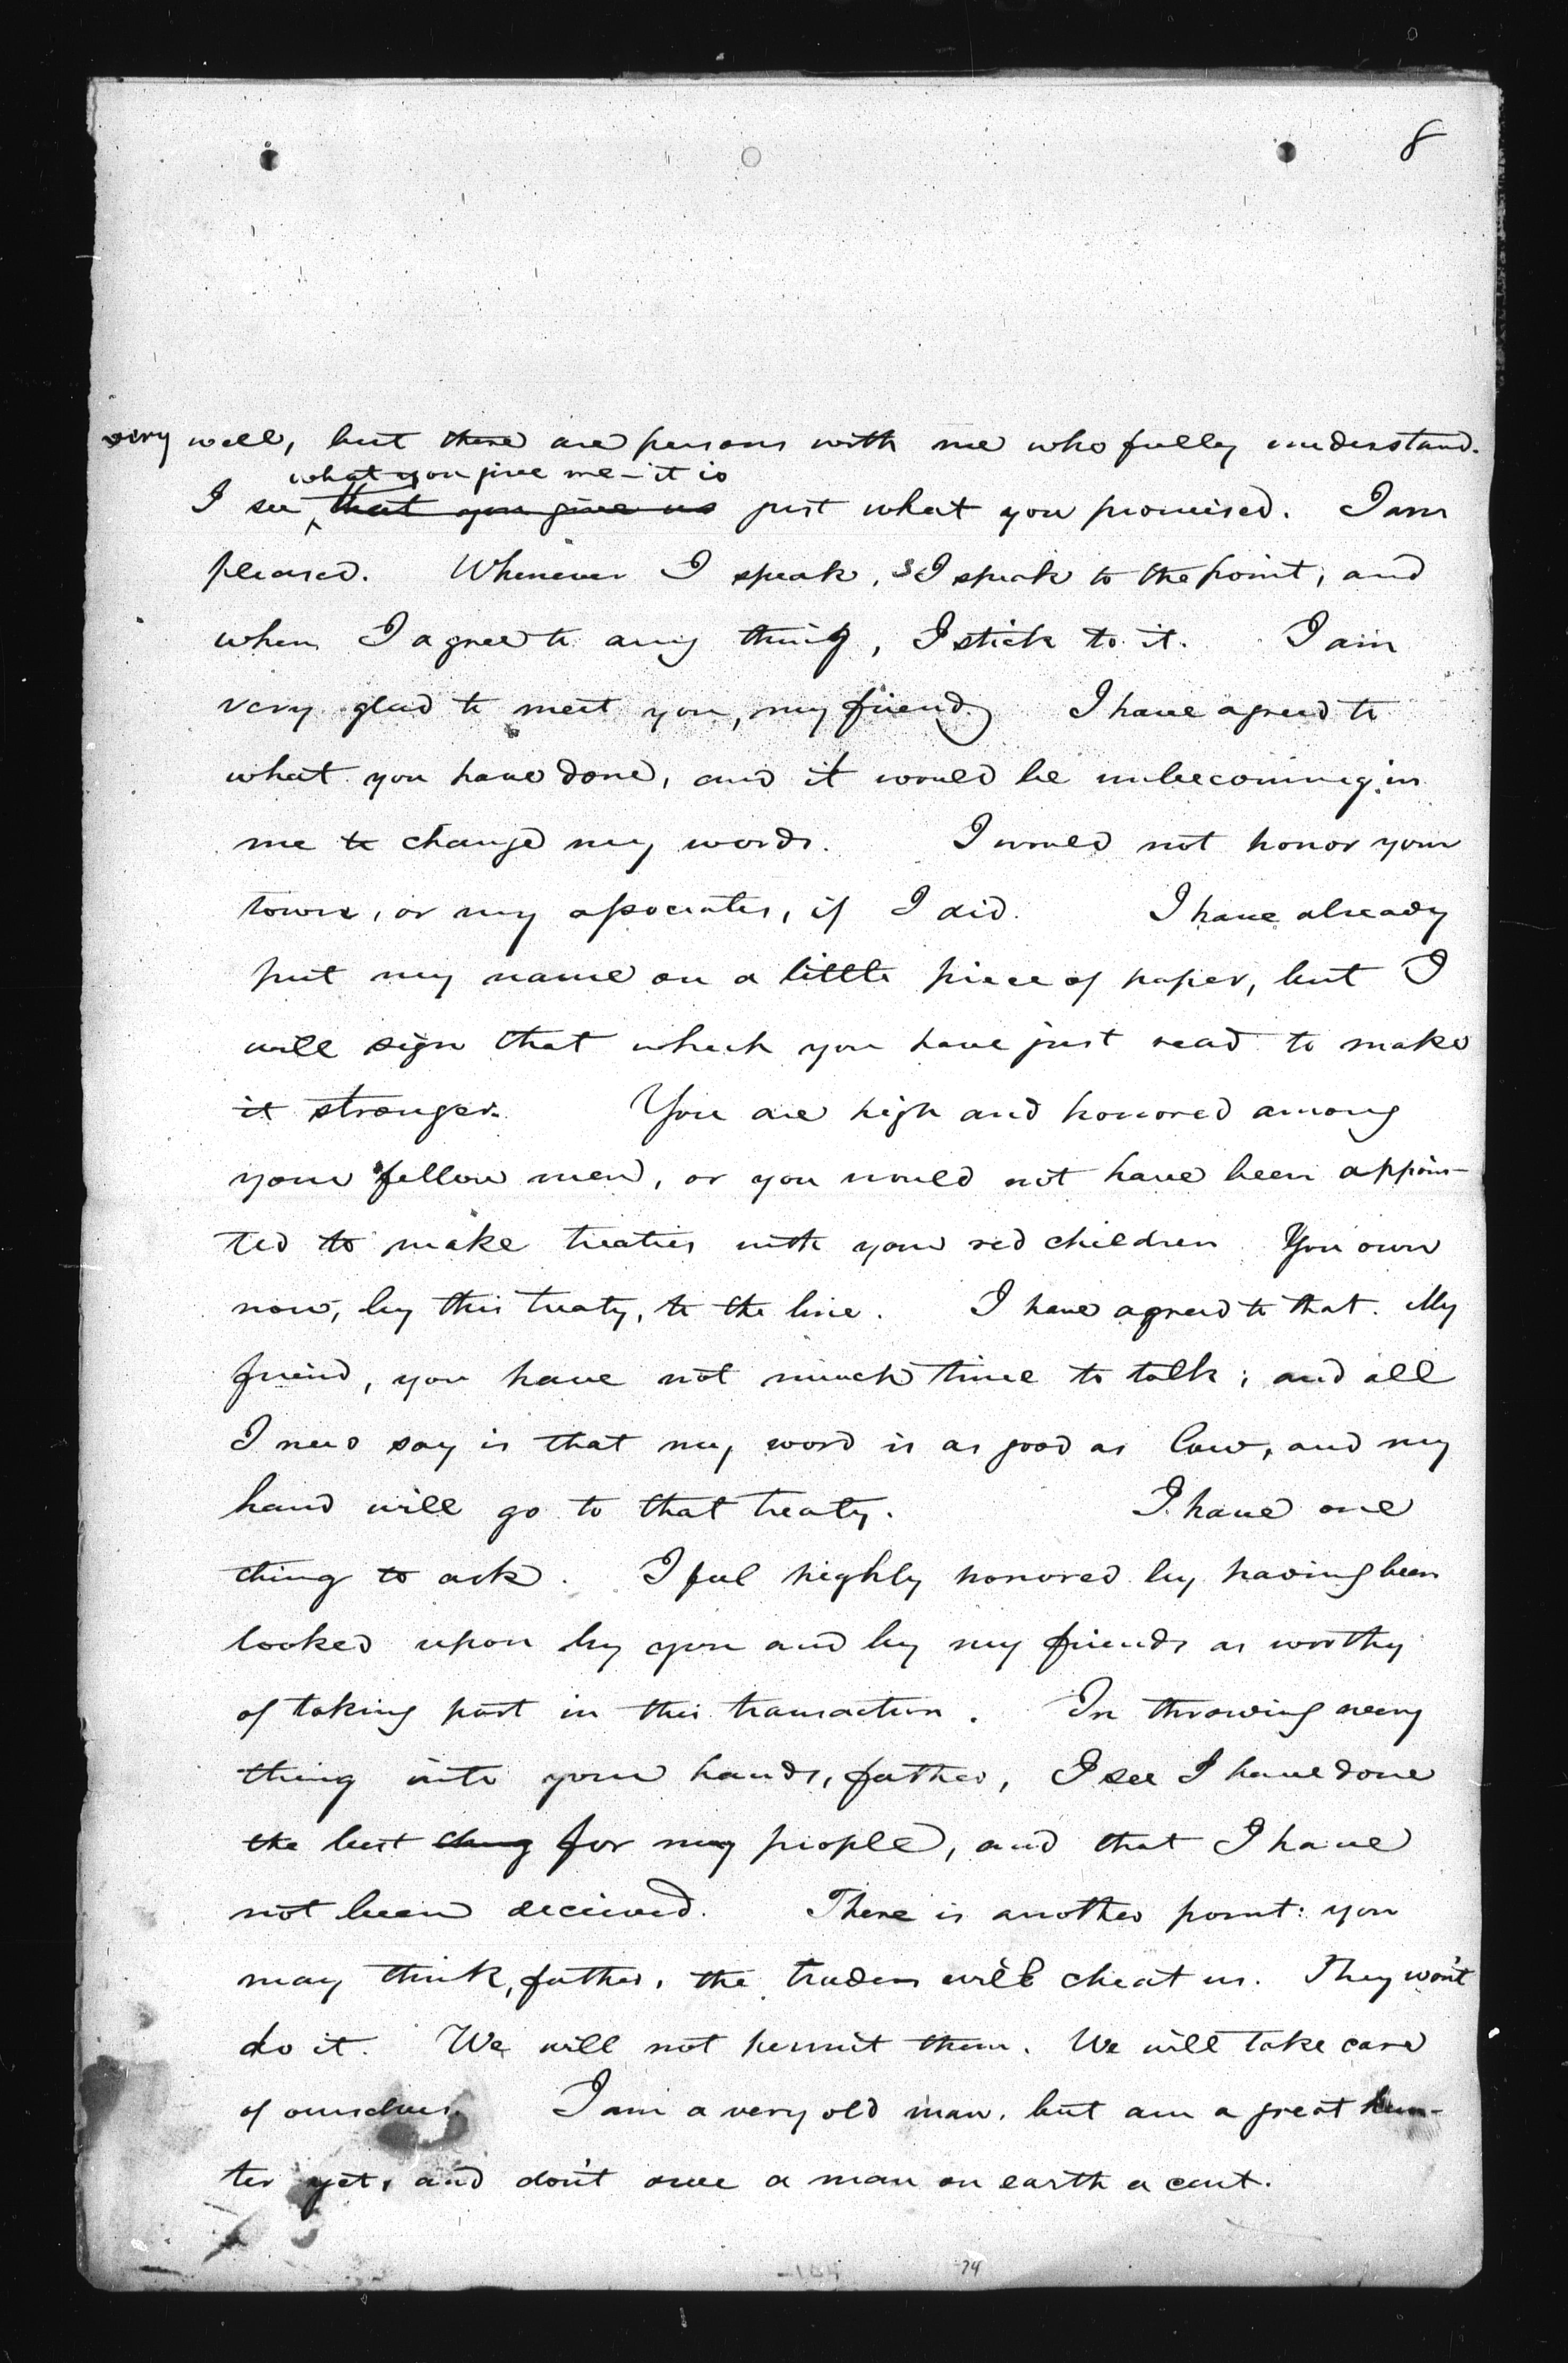 8
very well, but there are persons with me who fully understand.
what you give me – it is
I see that you give us just what you promised. I am
pleased. Whenever I speak, I speak to the point; and
when I agree to any thing, I stick to it. I am
very glad to meet you, my friend. I have agreed to
what you have done, and it would be unbecoming in
me to change my words. I would not honor your
town, or my associates, if I did. I have already
put my name on a little piece of paper, but I
will sign that which you have just read to make
it stronger. You are high and honored among
your fellow men, or you would not have been appoin-
ted to make treaties with your red children You own
now, by this treaty, to the line. I have agreed to that. My
friend, you have not much time to talk; and all
I need say is that my word is as good as law, and my
hand will go to that treaty. I have one
thing to ask. I feel highly honored by having been
looked upon by you and by my friends as worthy
of taking part in this transaction. In throwing every
thing into your hands, father, I see I have done
the best thing for my people, and that I have
not been deceived. There is another point: you
may think, father, the traders will cheat us. They won't
do it. We will not permit them. We will take care
of ourselves. I am a very old man, but am a great hun-
ter yet, and don't owe a man on earth a cent.
74